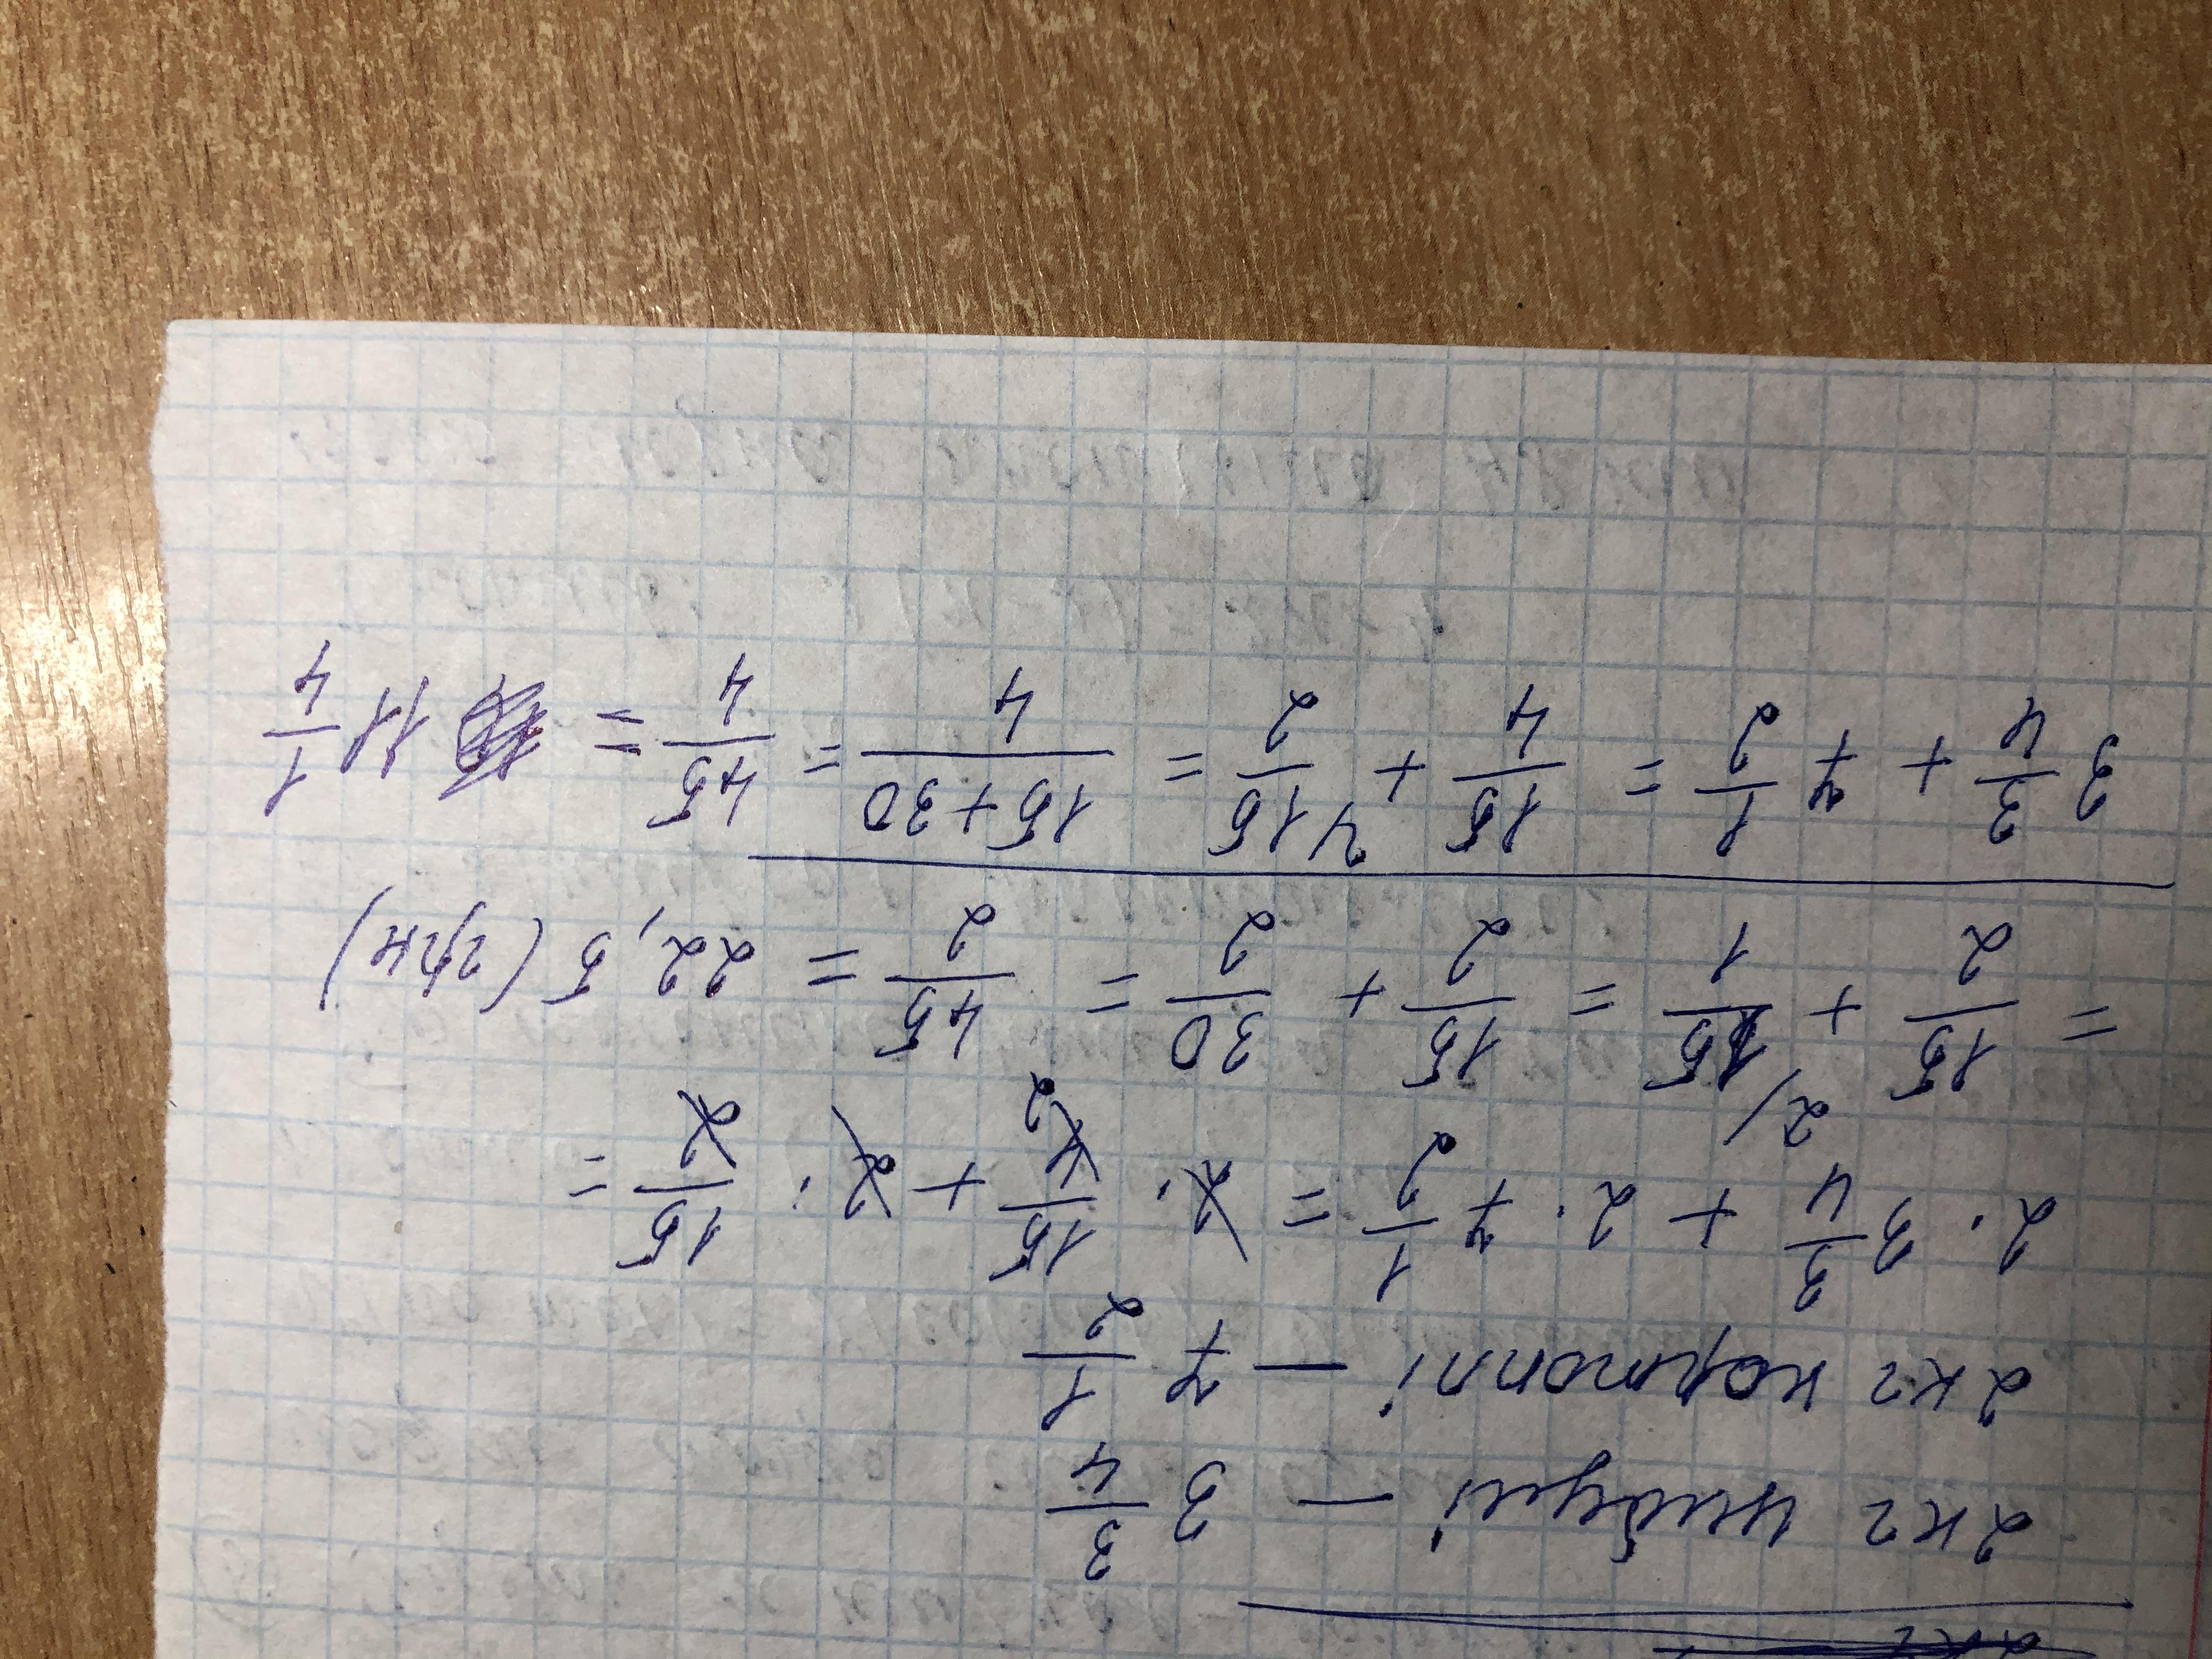 2кг цибулі — 3 3/4
2кг картоплі — 7 1/2
2 · 3 3/4 + 2 · 7 1/2 = 2 · 15/4 2 + 2 · 15/2 =
= 15/2 + 2/ 15/1 = 15/2 + 30/2 = 45/2 = 22,5 (грн)
3 3/4 + 7 1/2 = 15/4 + 2/ 15/2 = 15+30/4 = 45/4 = 11 1/4